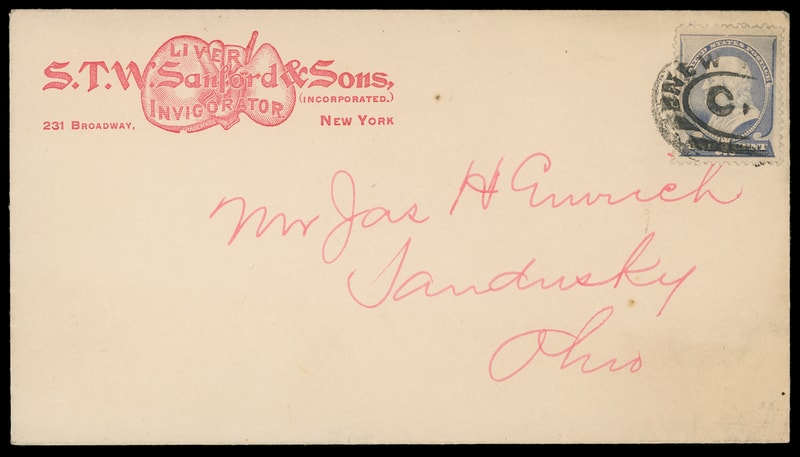 LIVER
S.T.W. Sanford & Sons,
INVIGORATOR
(INCORPORATED.)
231 BROADWAY,
NEW YORK
UNITED STATES POSTAGE
NEW
C.
Mr Jas H Emrich
Sandusky
Ohio